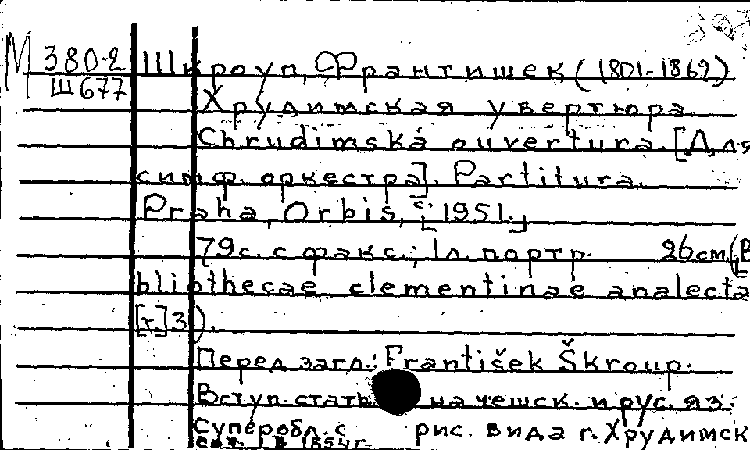 М 380-2 Шкроуп, Франтишек (1801-1862)
Ш677
Хрудимская увертюра
Chrudimská ouvertura. [Для
симф. оркестра]. Partitura.
Praha, Orbis, [1951.]
79с. с факс.; 1л. портр. 26см (Bi
bliothecae clementinae analecta
[т.] 3).
Перед загл.: František Škroup.
Вступ. статья на чешск. и рус. яз.
Суперобл. с рис. вида г. Хрудимск
1854г.